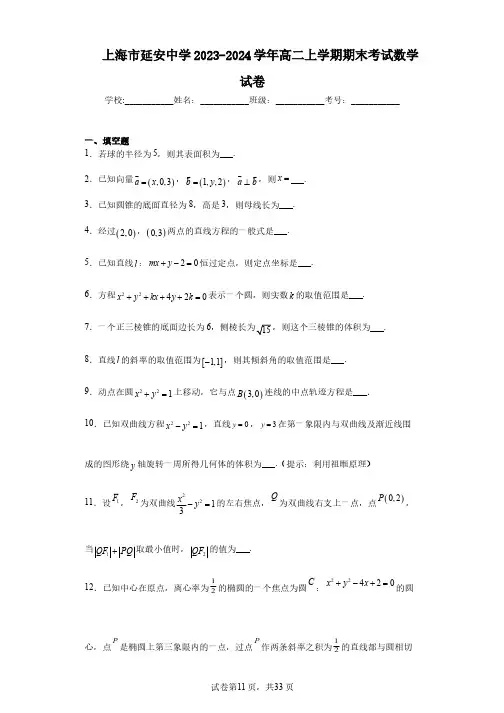 上海市延安中学2023-2024学年高二上学期期末考试数学
试卷
学校:___________姓名：___________班级：___________考号：___________
一、填空题
1．若球的半径为5，则其表面积为___.
2．已知向量a=(x,0,3)，b=(1,y,2)，a⊥b，则x=___.
3．已知圆锥的底面直径为8，高是3，则母线长为___.
4．经过(2,0)，(0,3)两点的直线方程的一般式是___.
5．已知直线l：mx+y−2=0恒过定点，则定点坐标是___.
6．方程x²+y²+kx+4y+2k=0表示一个圆，则实数k的取值范围是___.
7．一个正三棱锥的底面边长为6，侧棱长为√15，则这个三棱锥的体积为___.
8．直线l的斜率的取值范围为[−1,1]，则其倾斜角的取值范围是___.
9．动点在圆x²+y²=1上移动，它与点B(3,0)连线的中点轨迹方程是___.
10．已知双曲线方程x²−y²=1，直线y=0，y=3在第一象限内与双曲线及渐近线围
成的图形绕y轴旋转一周所得几何体的体积为___.（提示：利用祖暅原理）
11．设F₁，F₂为双曲线x²/3−y²=1的左右焦点，Q为双曲线右支上一点，点P(0,2)，
当|QF₁|+|PQ|取最小值时，|QF₂|的值为___.
12．已知中心在原点，离心率为1/2的椭圆的一个焦点为圆C：x²+y²−4x+2=0的圆
心，点P是椭圆上第三象限内的一点，过点P作两条斜率之积为1/2的直线都与圆相切
试卷第11页，共33页